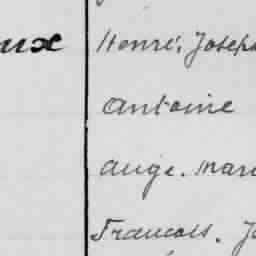 ux Henri, Joseph
Antoine
Ange. Mari
Francois. J